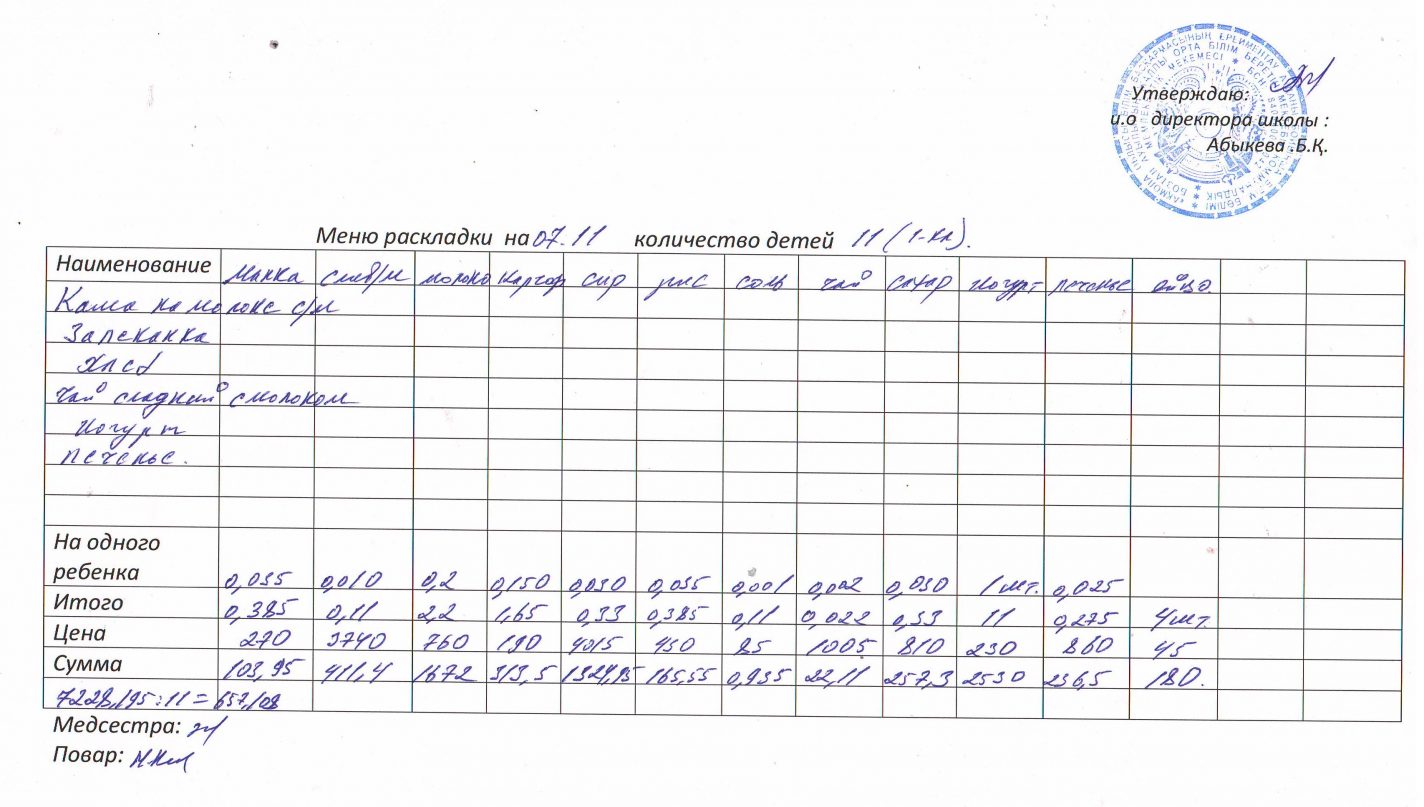 Утверждаю:
и.о директора школы :
Абыкева .Б.Қ.
Меню раскладки на 07.11 количество детей 11 (1-кл).
Наименование Манка слив/м молоко картоф сир рис соль чай сахар йогурт печенье яйцо.
Каша на молоке с/м
Запеканка
Хлеб
Чай сладкий с молоком
Йогурт
печенье.
На одного
ребенка 0,035 0,010 0,2 0,150 0,030 0,035 0,001 0,002 0,030 1 шт. 0,025
Итого 0,385 0,11 2,2 1,65 0,33 0,385 0,11 0,022 0,33 11 0,275 4шт.
Цена 270 3740 760 190 4015 430 85 1005 810 230 860 45
Сумма 103,95 411,4 1672 313,5 1324,95 165,55 0,935 22,11 257,3 2530 236,5 180.
7228,195:11 = 657,108
Медсестра:
Повар: